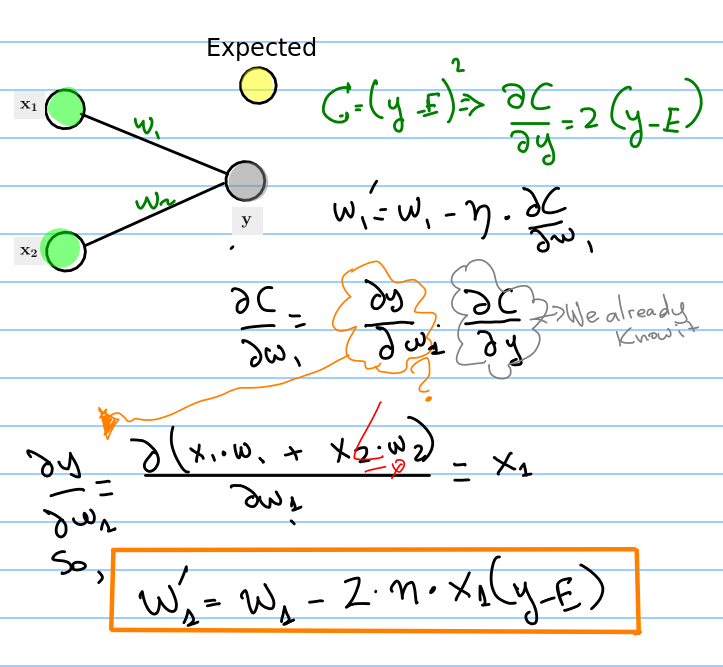 Expected
x₁
w₁
C=(y-E)² => ∂C/∂y = 2(y-E)
w₂
y
x₂
w₁' = w₁ - η · ∂C/∂w₁
∂C/∂w₁ = ∂y/∂w₁ · ∂C/∂y → We already know it
?
∂y/∂w₁ = ∂(x₁·w₁ + x₂·w₂)/∂w₁ = x₁
0
So,
w₁' = w₁ - 2·η·x₁(y-E)